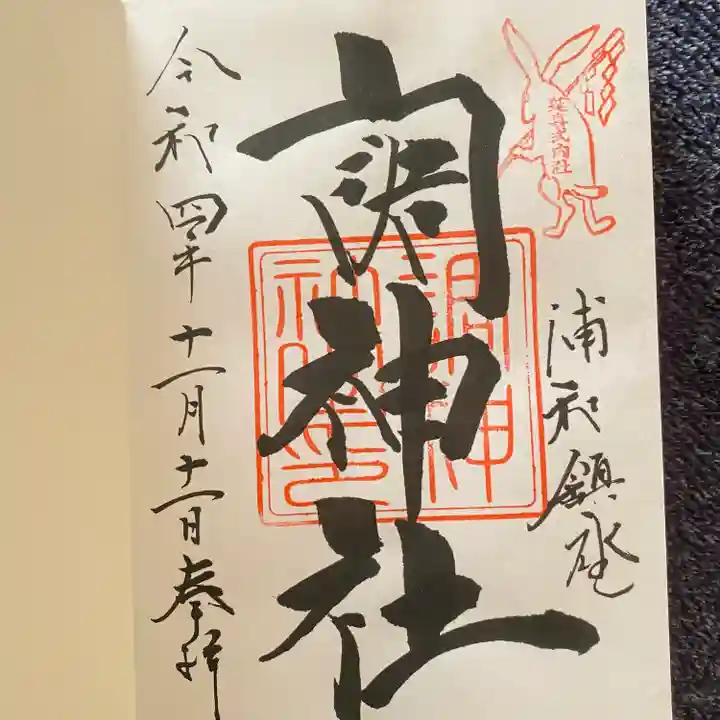 延喜式内社
浦和鎮座
調神社
調神
社之印
令和四年十一月十二日奉拝